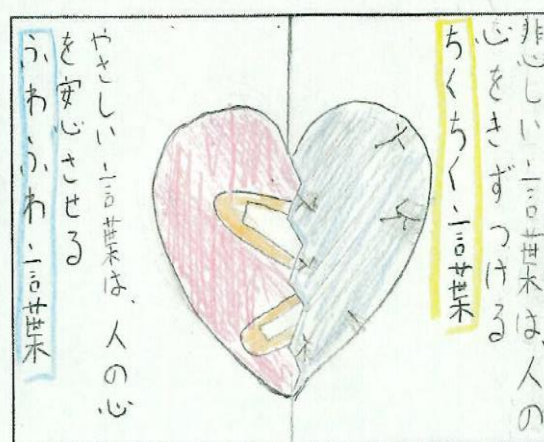 悲しい言葉は、人の
心をきずつける
ちくちく言葉
やさしい言葉は、人の心
を安心させる
ふわふわ言葉